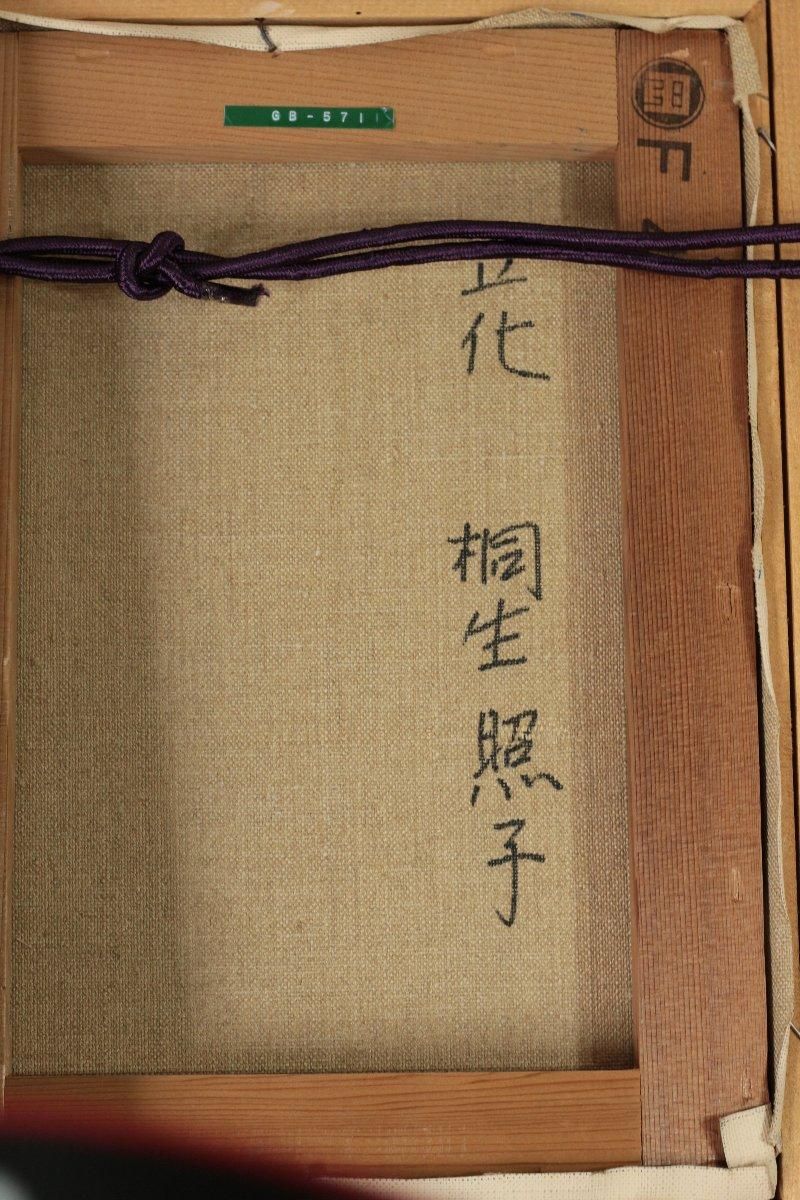 GB-571
F
化
桐生 照子